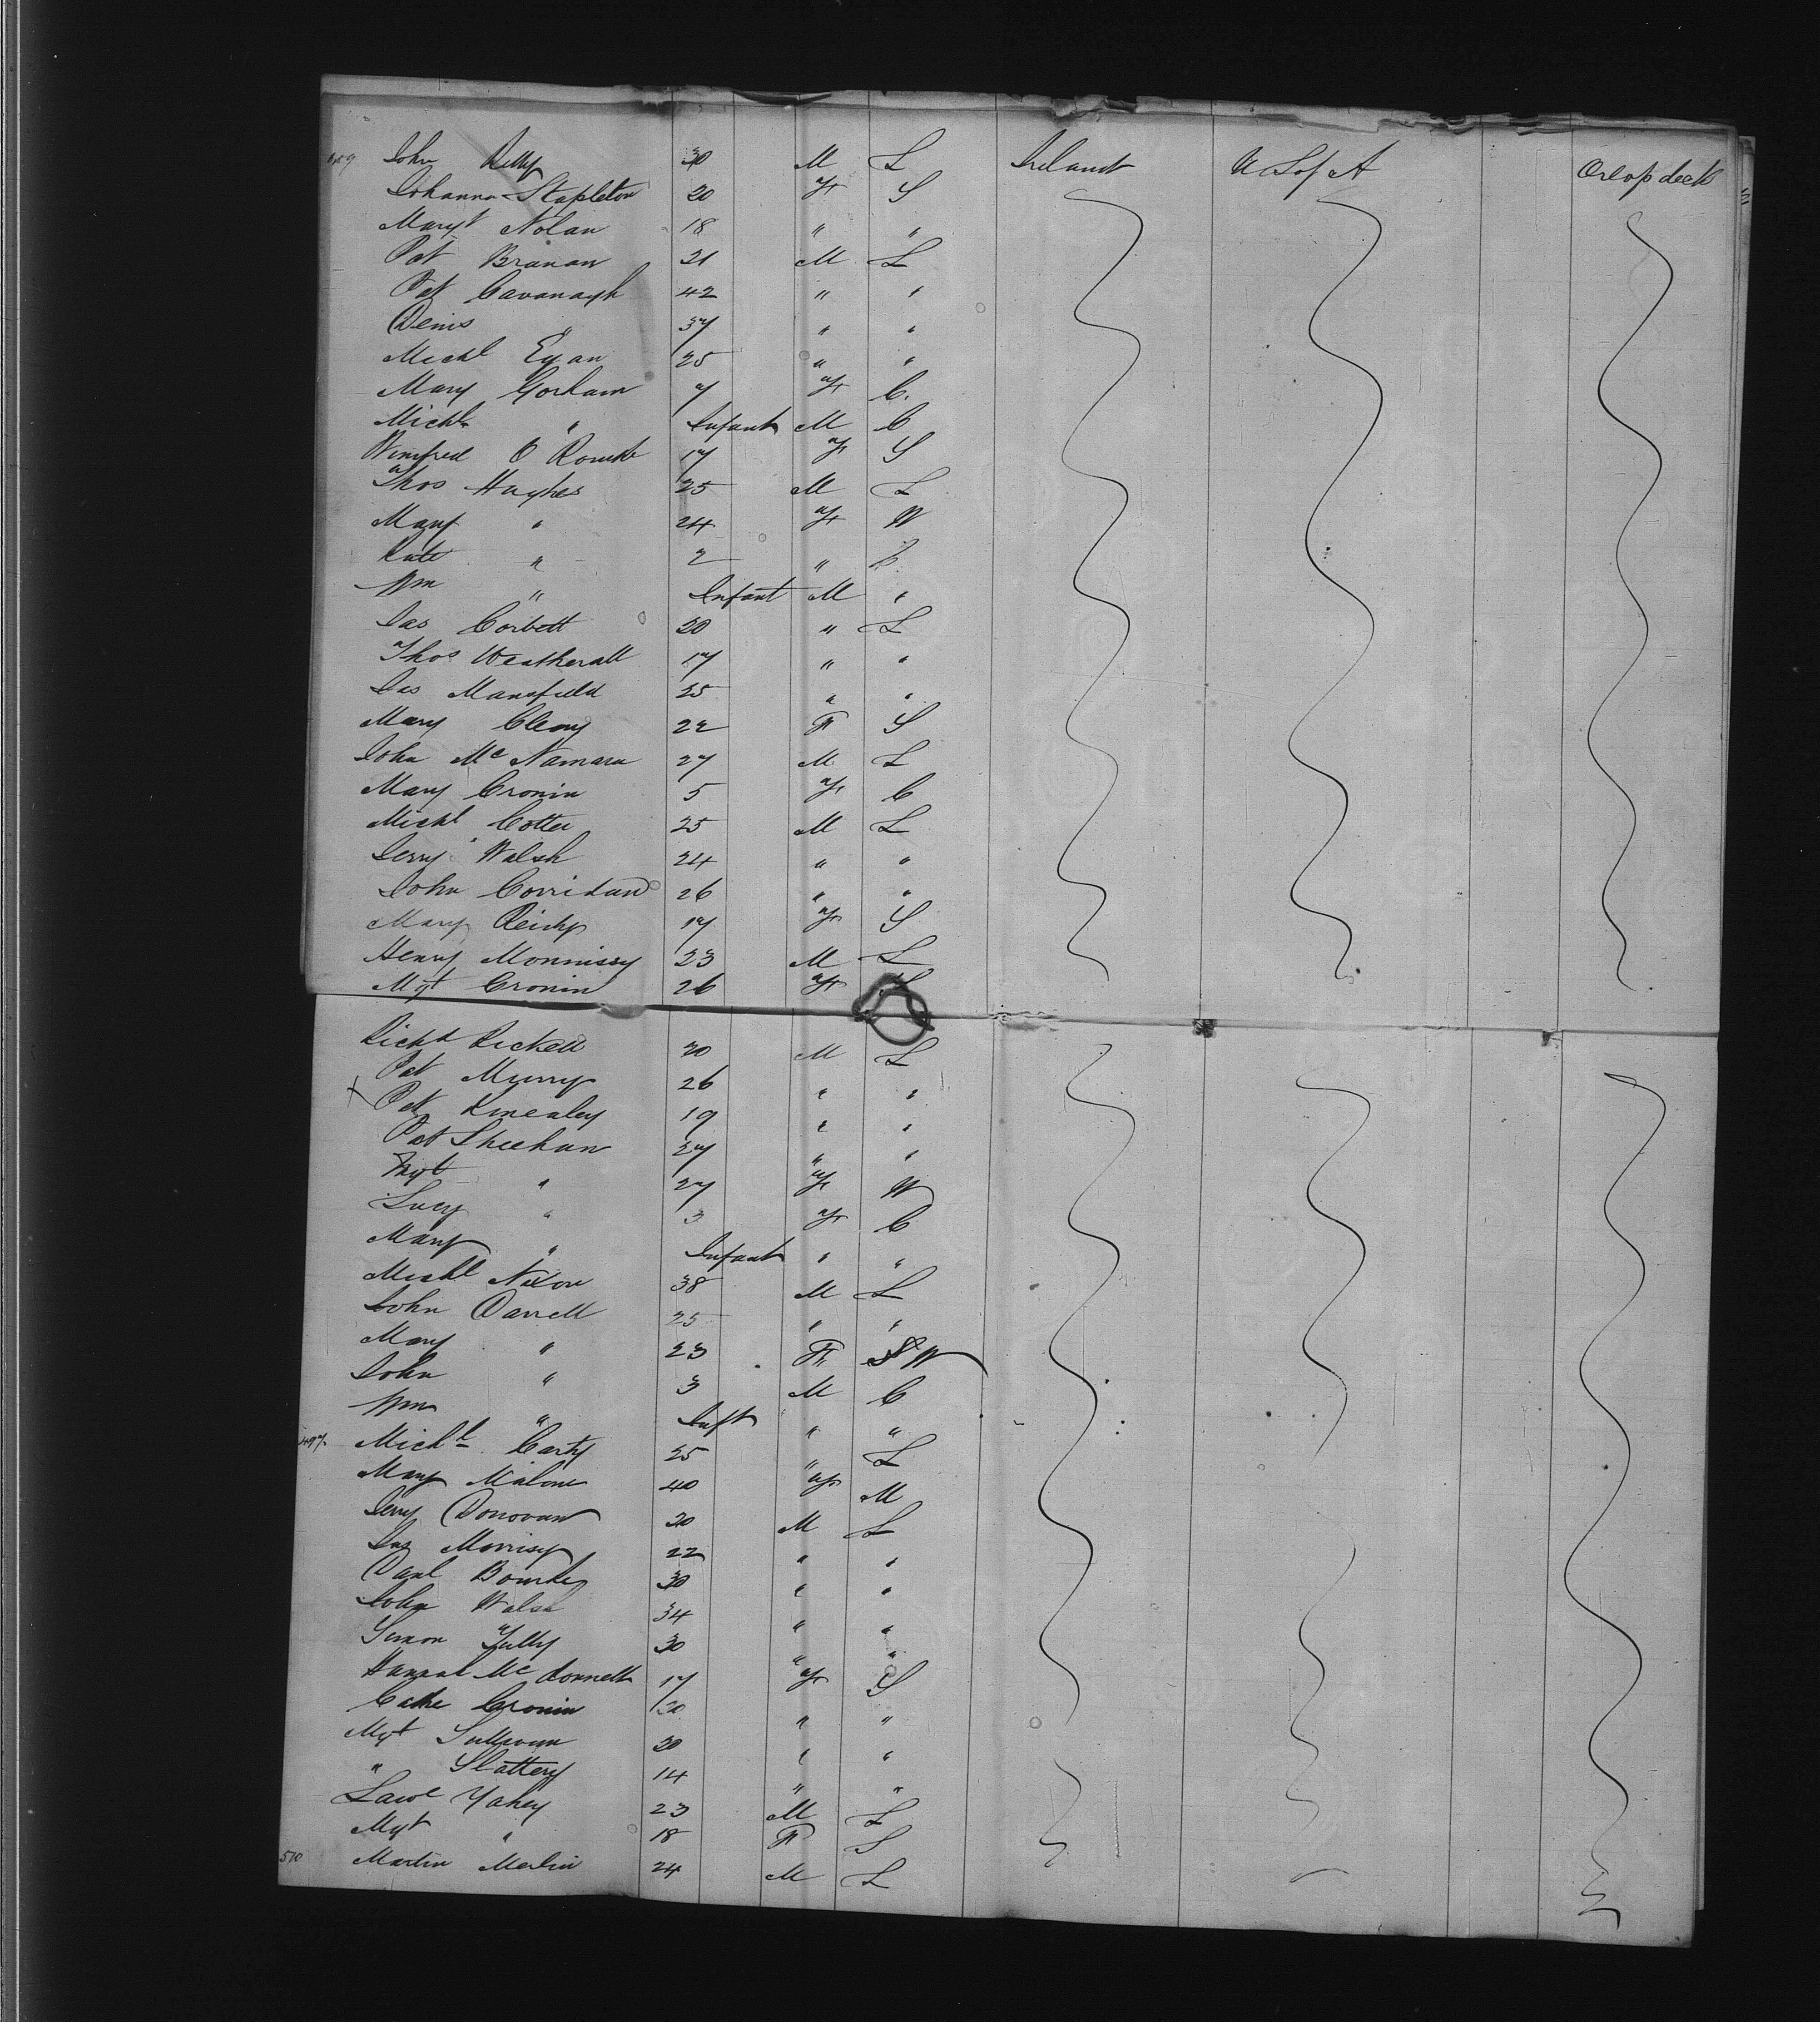 459 John Kelly 30 M L Ireland U S of A Orlop deck
Johanna Stapleton 20 F S
Margt Nolan 18 " "
Pat Branan 21 M L
Pat Cavanagh 42 " "
Denis " 37 " "
Michl Egan 25 " "
Mary Gorham 7 F C.
Michl " Infant M C
Winifred O Rourke 17 F S
Thos Hughes 25 M L
Mary " 24 F W
Kate " 2 " C
Wm " Infant M "
Jas Corbett 20 " L
Thos Weatherall 17 " "
Jas Mansfield 25 " "
Mary Cleary 22 F S
John Mc Namara 27 M L
Mary Cronin 5 F C
Michl Cotter 25 M L
Jerry Walsh 24 " "
John Corridan 26 " "
Mary Reidy 17 F S
Henry Monnissy 23 M L
Mgt Cronin 26 F S
Richd Rickett 30 M L
Pat Murry 26 " "
x Pat Kinealey 19 " "
Pat Sheehan 27 " "
Mgt " 27 F W
Lucy " 3 F C
Mary " Infant " "
Michl Nixon 38 M L
John Darrell 25 " "
Mary " 23 F W
John " 3 M C
Wm " Inft " "
497 Michl Carty 25 " L
Mary Malone 40 F M
Jerry Donovan 30 M L
Jas Morrisy 22 " "
Danl Bourke 30 " "
John Walsh 34 " "
Simon Tully 30 " "
Hannah Mc Donnell 17 F S
Cathe Cronin 20 " "
Mgt Sullivan 30 " "
" Slattery 14 " "
Lawe Fahey 23 M L
Mgt " 18 F S
510 Martin Merlin 24 M L